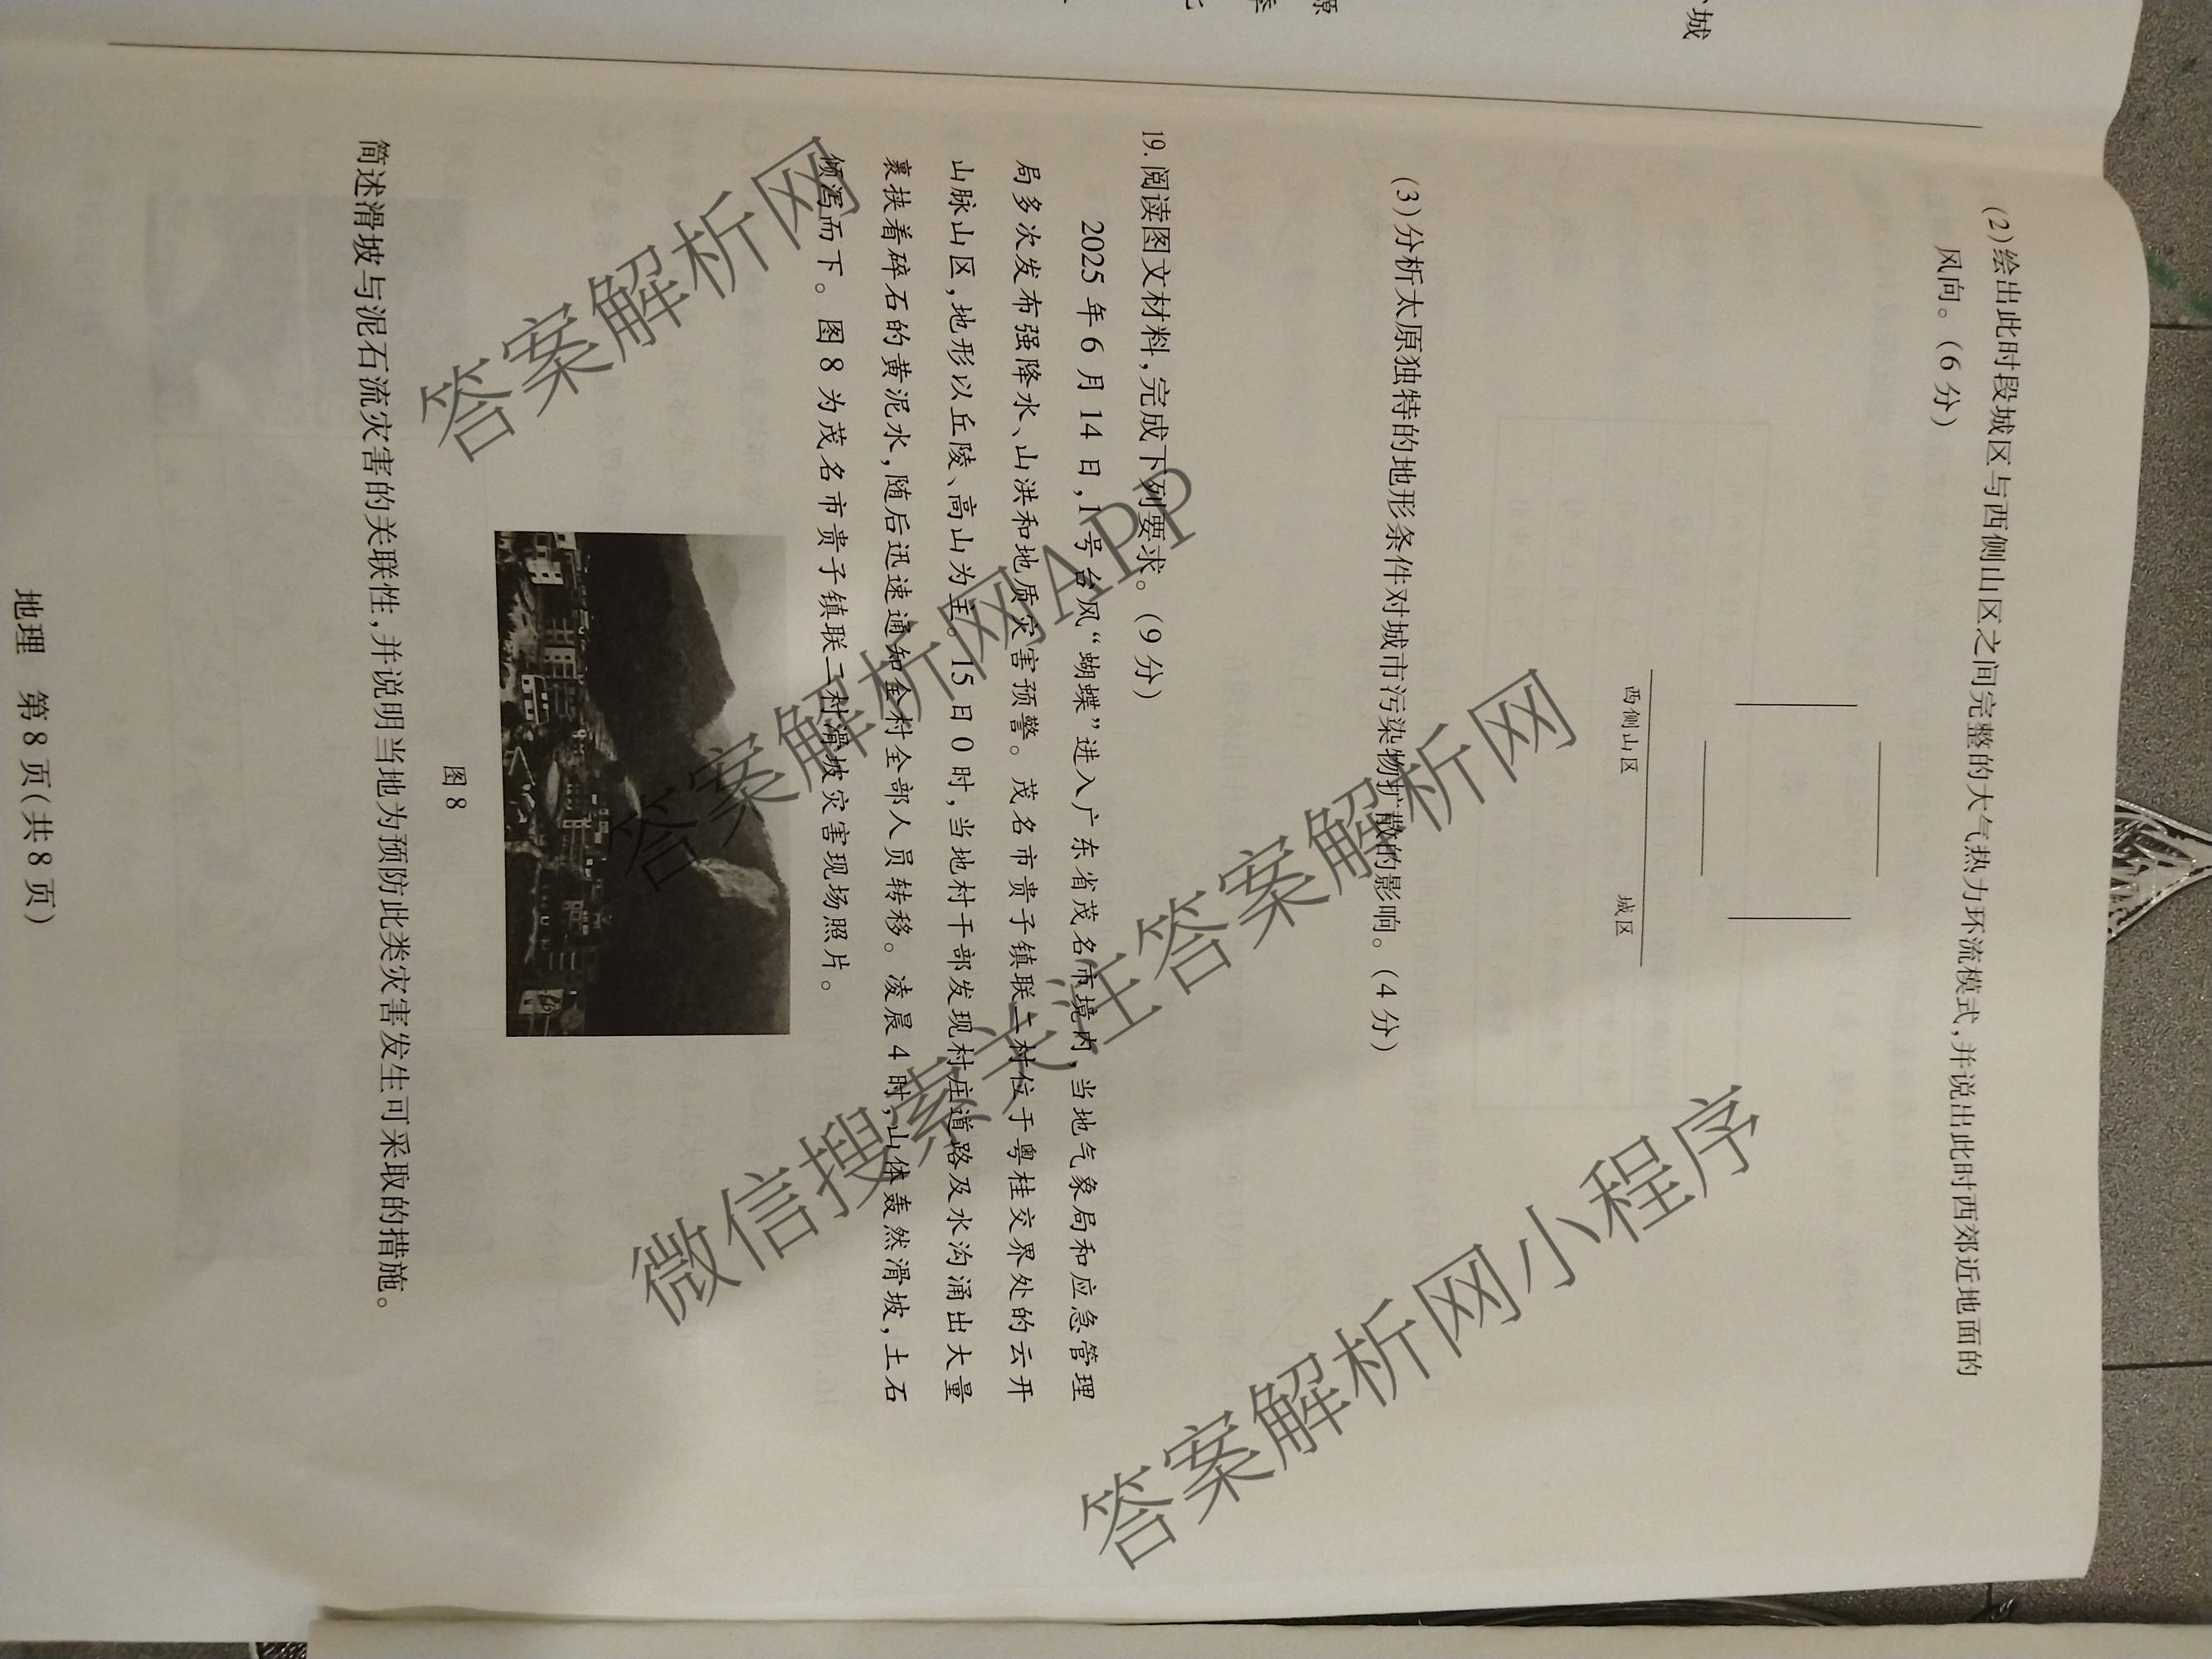 (2)绘出此时段城区与西侧山区之间完整的大气热力环流模式,并说出此时西郊近地面的
风向。(6分)
西侧山区 城区
(3)分析太原独特的地形条件对城市污染物扩散的影响。(4分)
19.阅读图文材料,完成下列要求。(9分)
2025年6月14日,1号台风“蝴蝶”进入广东省茂名市境内,当地气象局和应急管理
局多次发布强降水、山洪和地质灾害预警。茂名市贵子镇联二村位于粤桂交界处的云开
山脉山区,地形以丘陵、高山为主。15日0时,当地村干部发现村庄道路及水沟涌出大量
裹挟着碎石的黄泥水,随后迅速通知全村全部人员转移。凌晨4时,山体轰然滑坡,土石
倾泻而下。图8为茂名市贵子镇联二村滑坡灾害现场照片。
图8
简述滑坡与泥石流灾害的关联性,并说明当地为预防此类灾害发生可采取的措施。
地理 第8页(共8页)
答案解析网
答案解析网APP
微信搜索关注答案解析网
答案解析网小程序
城
源